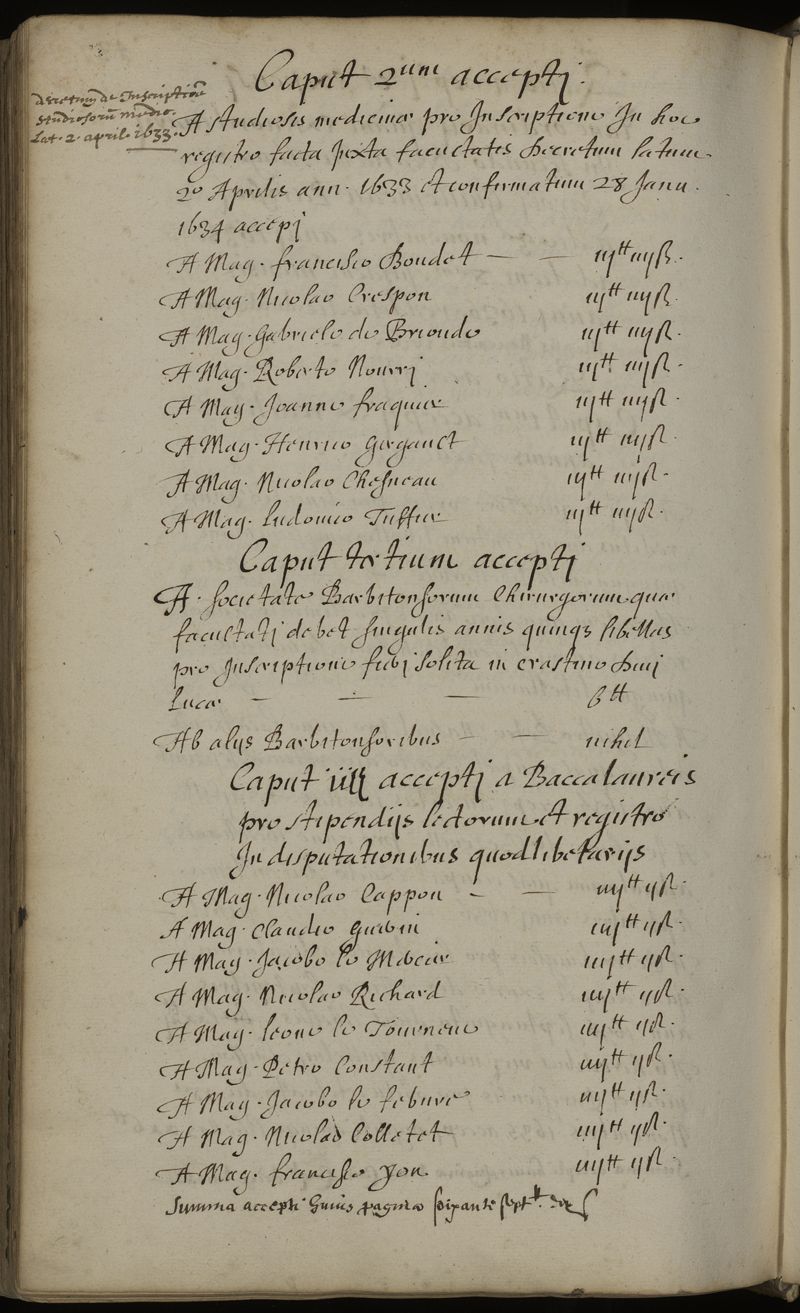 Caput 2um accepti.
decretum de Inscriptione
studiosorum medic.
Lat. 2. april. 1633.
A studiosis medicinae pro Inscriptione In hoc
registro facta Juxta facultatis Decretum latum
2o Aprilis ann. 1633 et confirmatum 28 Janu.
1634 accepi
A Mag. francisco Boudet — — iij tt iiij ß.
A Mag. Nicolao Crespon iij tt iiij ß.
A Mag. Gabriele de Brionde iij tt iiij ß.
A Mag. Roberto Nourri iij tt iiij ß.
A Mag. Joanne fraquier iij tt iiij ß.
A Mag. Henrico iij tt iiij ß.
A Mag. Nicolao Chesneau iij tt iiij ß.
A Mag. Ludovico Tuffier iij tt iiij ß.
Caput tertium accepti
A. societate Barbitonsorum Chirurgorum quae
facultati debet singulis annis quinq3 libellas
pro Inscriptione fieri solita in crastino Divi
Lucae — — — 6 tt
Ab alijs Barbitonsoribus — — nihil
Caput iiij accepti a Baccalaureis
pro stipendijs lectorum et registro
In disputationibus quodlibetarijs
A Mag. Nicolao Cappon — — iiij tt ij ß.
A Mag. Claudio Guerin iiij tt ij ß.
A Mag. Jacobo le Mercier iiij tt ij ß.
A Mag. Nicolao Richard iiij tt ij ß.
A Mag. Leone le Tourneur iiij tt ij ß.
A Mag. Petro Constant iiij tt ij ß.
A Mag. Jacobo le febure iiij tt ij ß.
A Mag. Nicolao Colletet iiij tt ij ß.
A Mag. francisco yon. iiij tt ij ß.
Summa accepti huius paginae soixante sept tt